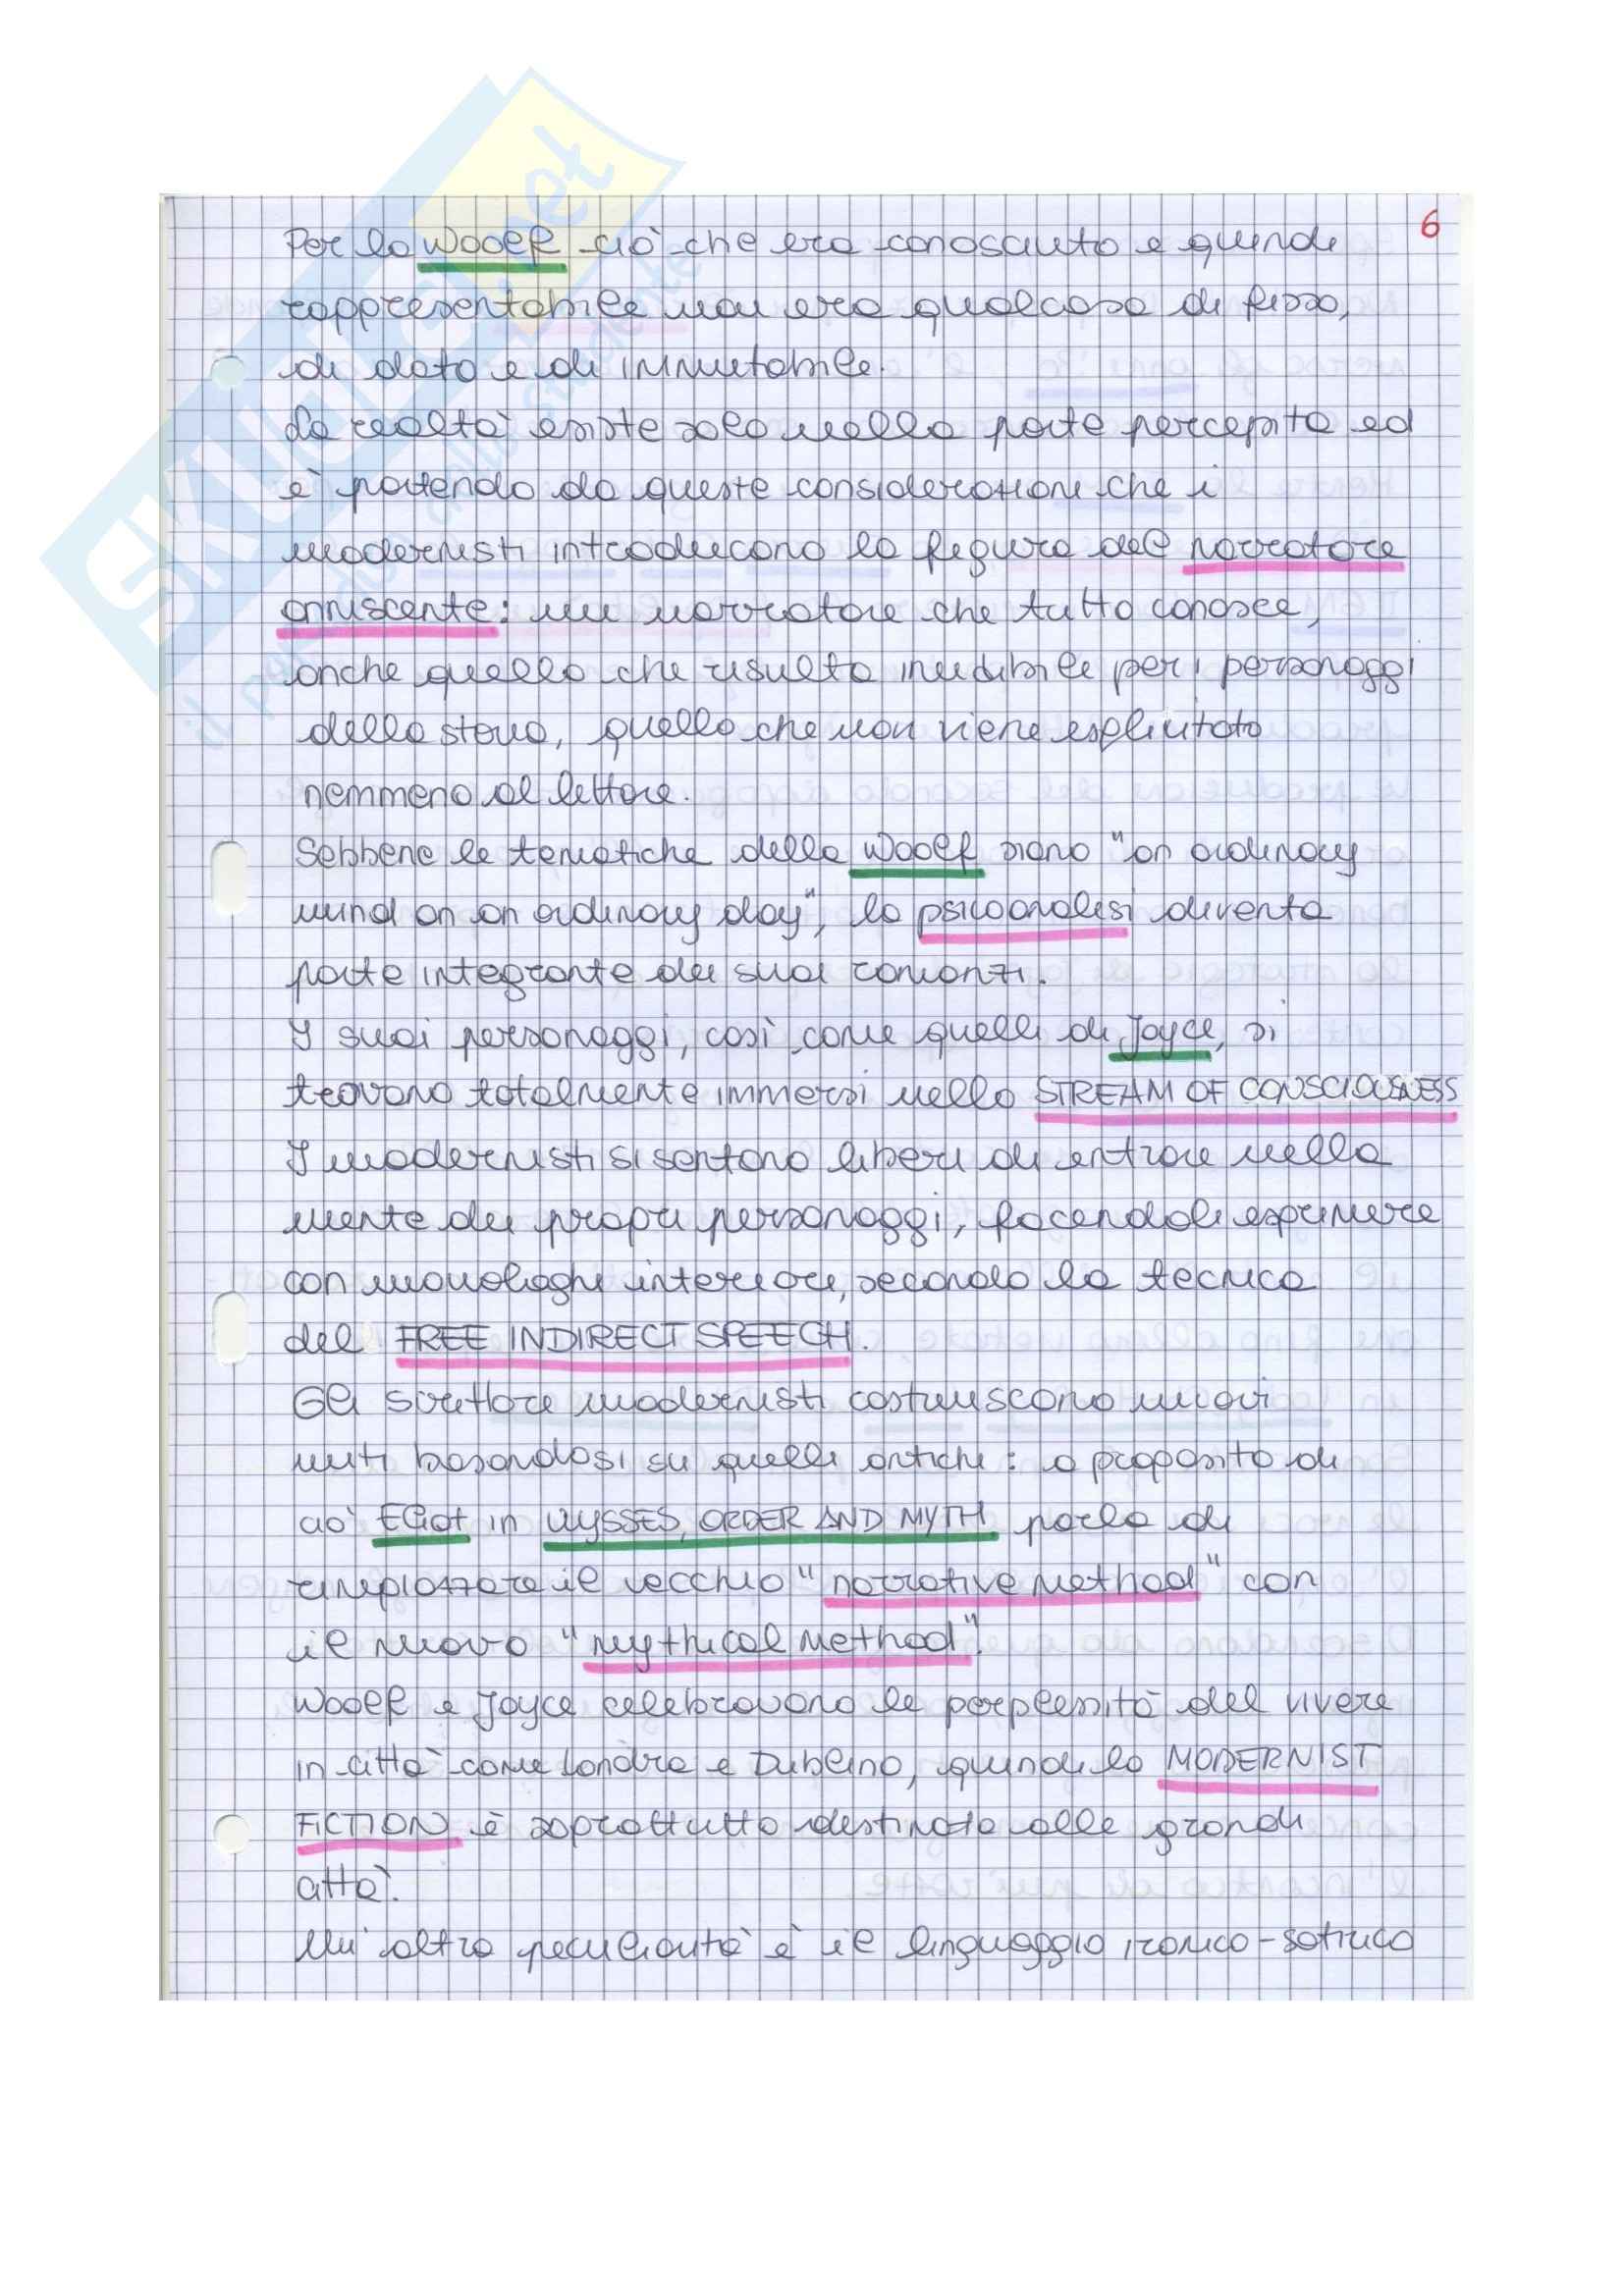 6
Per la Woolf ciò che era conosciuto e quindi
rappresentabile non era qualcosa di fisso,
di dato e di immutabile.
La realtà esiste solo nella parte percepita ed
è partendo da queste considerazioni che i
modernisti introducono la figura del narratore
onniscente: un narratore che tutto conosce,
anche quello che risulta inudibile per i personaggi
della storia, quello che non viene esplicitato
nemmeno al lettore.
Sebbene le tematiche della Woolf siano "an ordinary
mind on an ordinary day", la psicoanalisi diventa
parte integrante dei suoi romanzi.
I suoi personaggi, così come quelli di Joyce, si
trovano totalmente immersi nello STREAM OF CONSCIOUSNESS
I modernisti si sentono liberi di entrare nella
mente dei propri personaggi, facendoli esprimere
con monologhi interiori, secondo la tecnica
del FREE INDIRECT SPEECH.
Gli scrittori modernisti costruiscono nuovi
miti basandosi su quelli antichi: a proposito di
ciò Eliot in ULYSSES, ORDER AND MYTH parla di
rimpiazzare il vecchio "narrative method" con
il nuovo "mythical method".
Woolf e Joyce celebravano le perplessità del vivere
in città come Londra e Dublino, quindi la MODERNIST
FICTION è soprattutto destinata alle grandi
città.
Un'altra peculiarità è il linguaggio ironico-satirico
SKUOLA.net